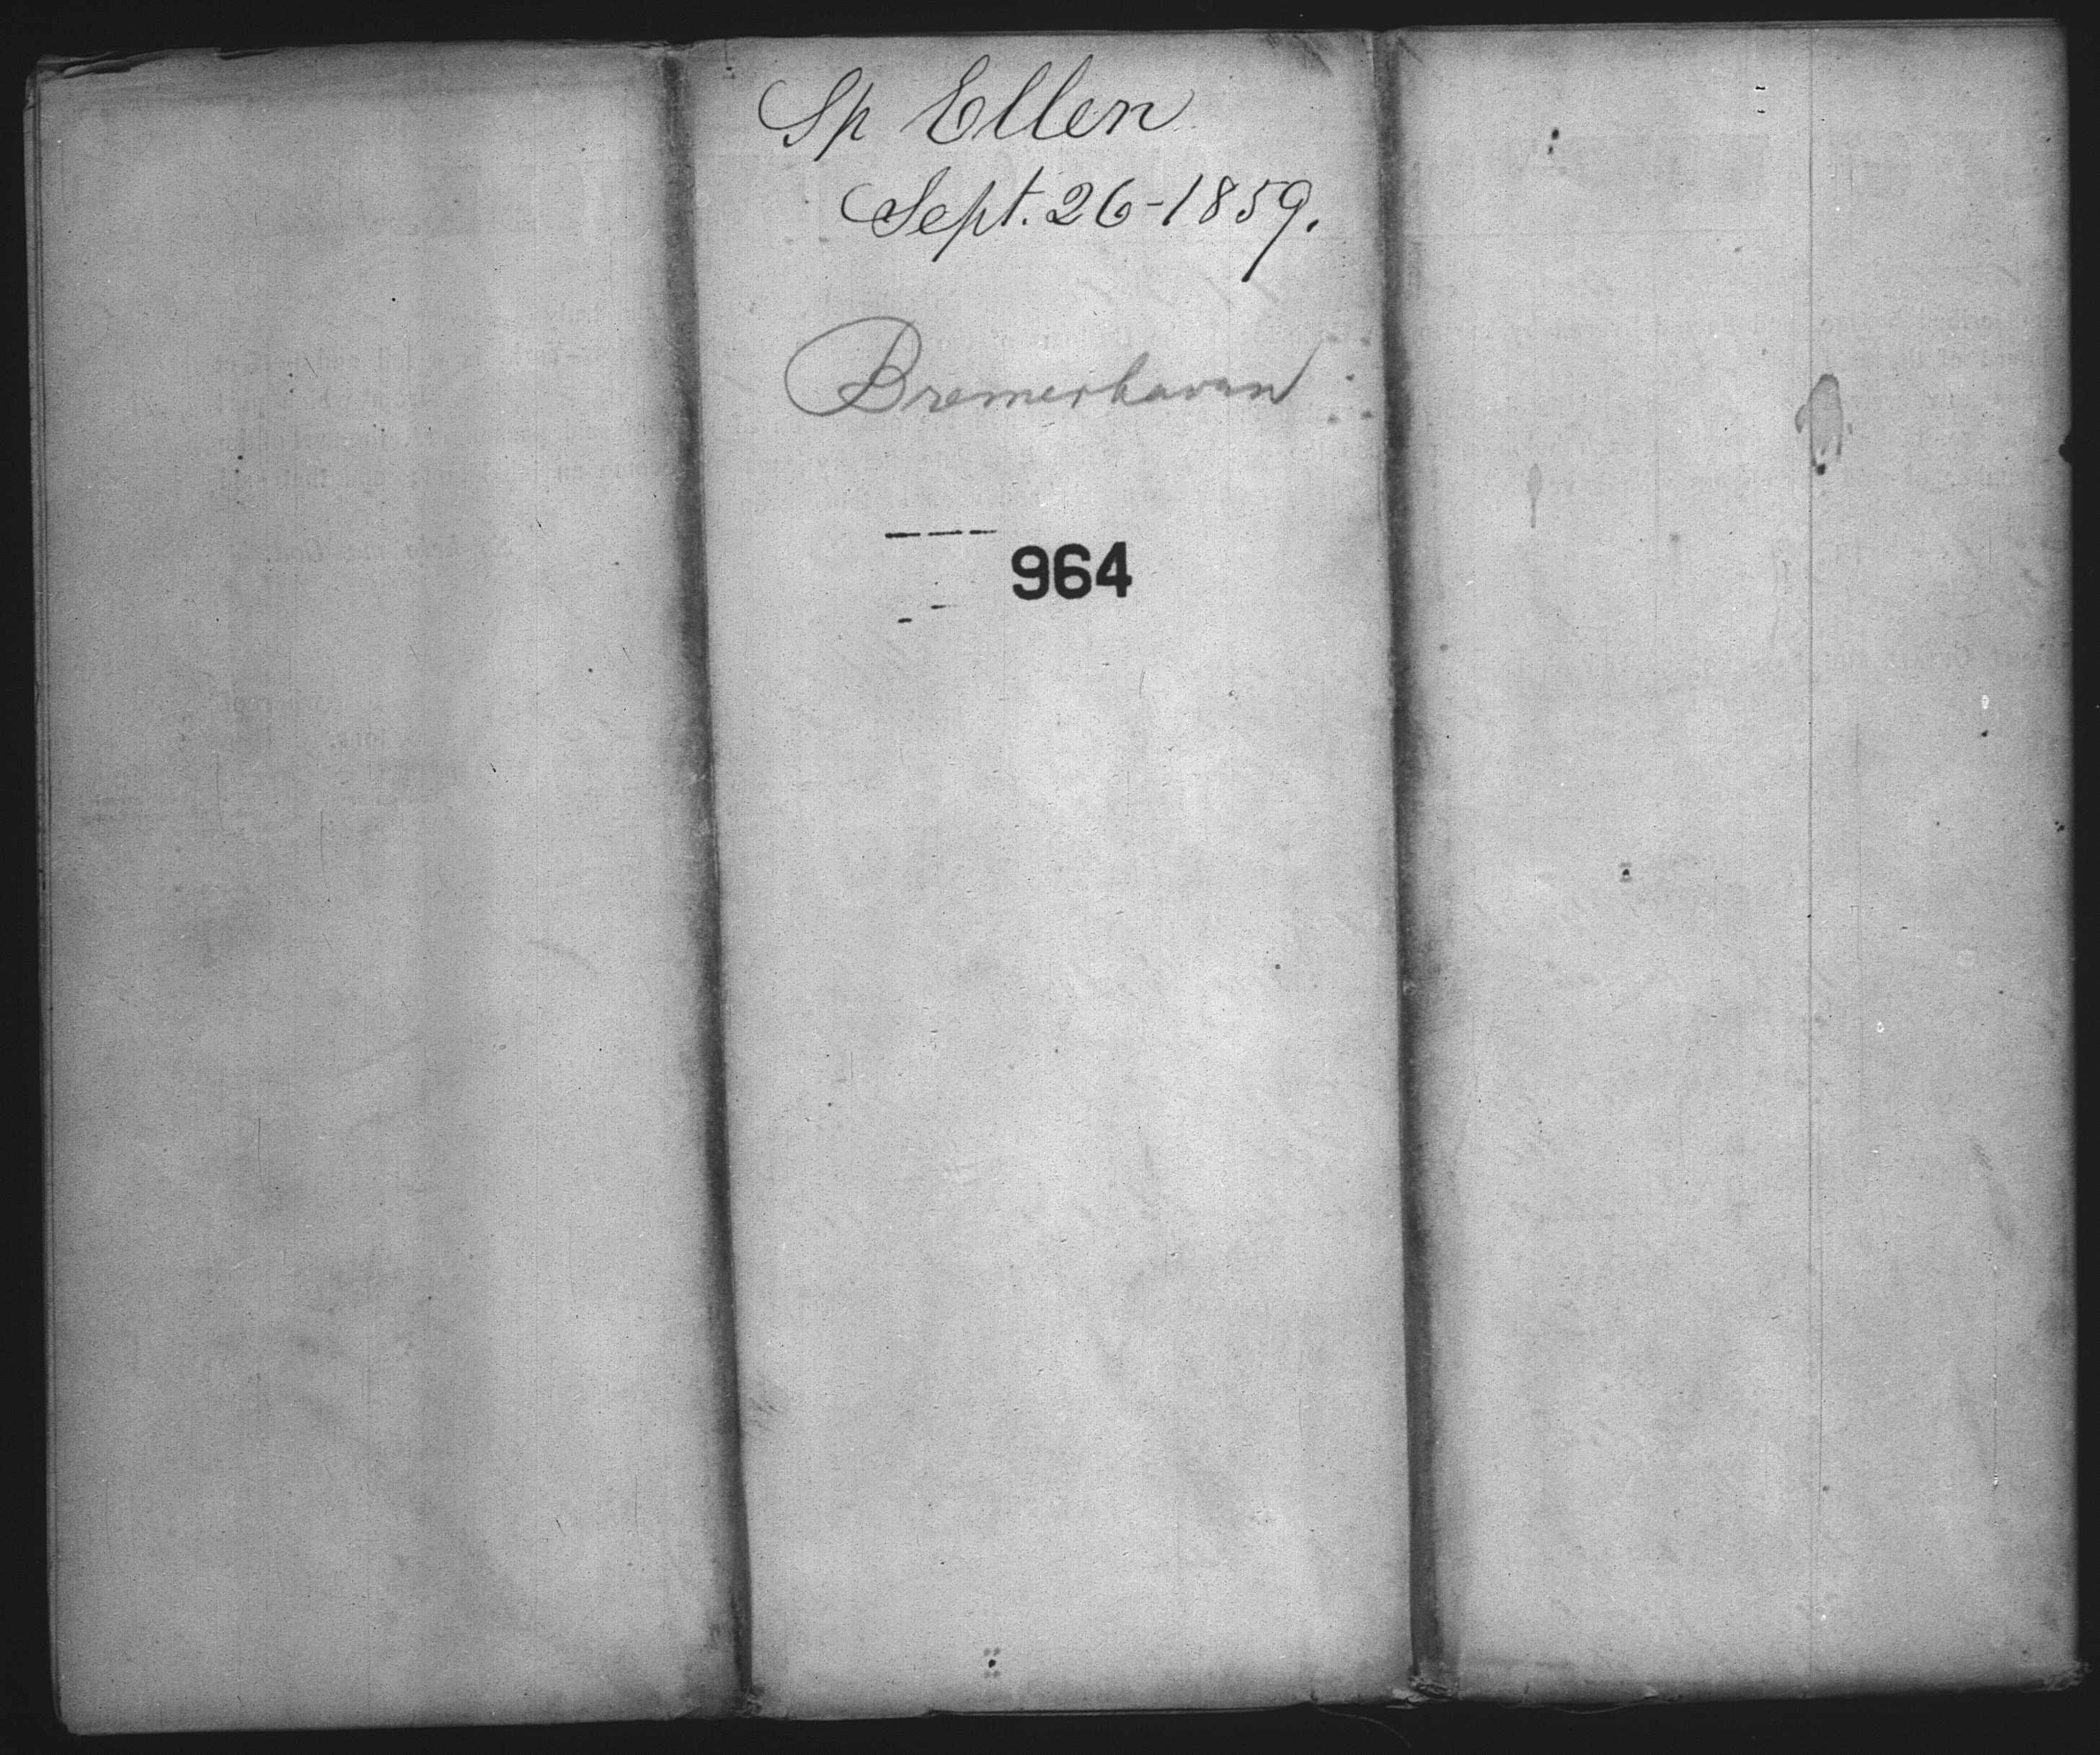 Sp Ellen
Sept. 26-1859.
Bremerhaven
964